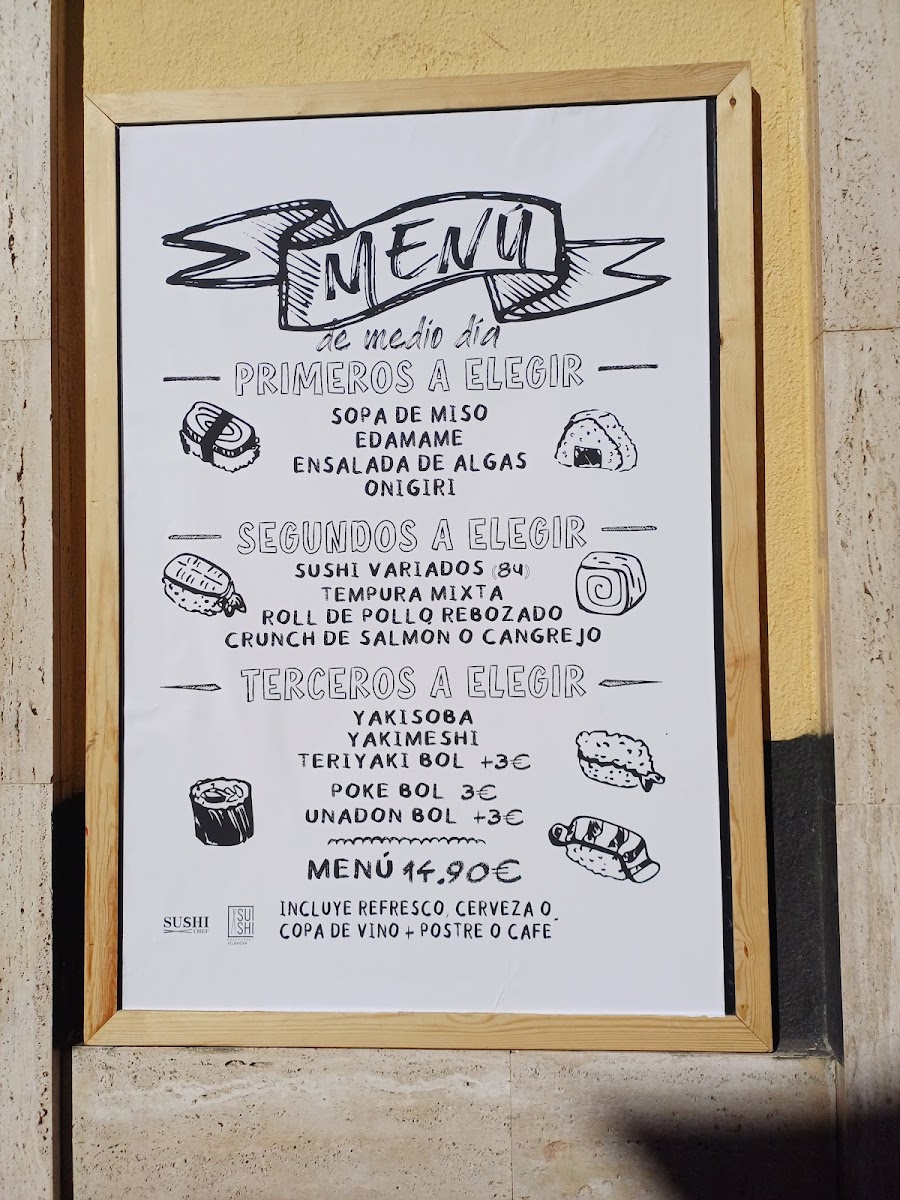 MENÚ
de medio día
PRIMEROS A ELEGIR
SOPA DE MISO
EDAMAME
ENSALADA DE ALGAS
ONIGIRI
SEGUNDOS A ELEGIR
SUSHI VARIADOS (8U)
TEMPURA MIXTA
ROLL DE POLLO REBOZADO
CRUNCH DE SALMON O CANGREJO
TERCEROS A ELEGIR
YAKISOBA
YAKIMESHI
TERIYAKI BOL +3€
POKE BOL 3€
UNADON BOL +3€
MENÚ 14.90€
INCLUYE REFRESCO, CERVEZA O
COPA DE VINO + POSTRE O CAFÉ
SUSHI
CHEF
SU
SHI